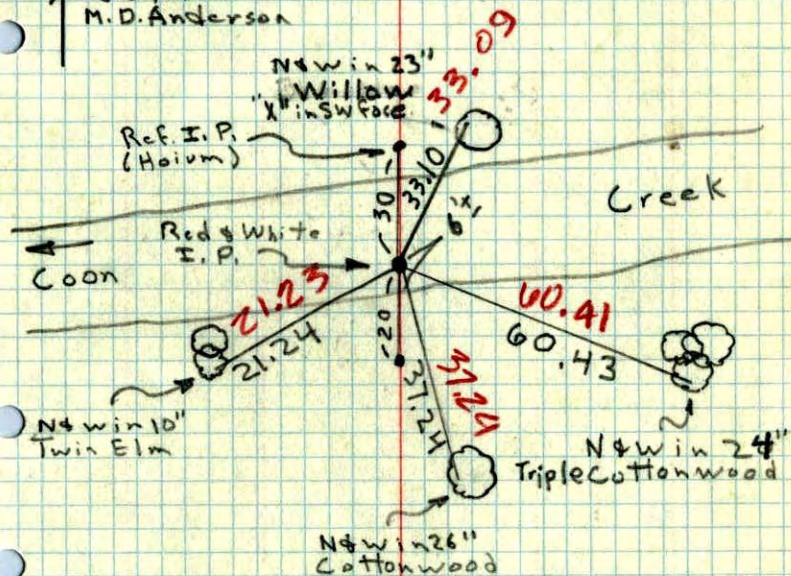 M.D. Anderson
N&W in 23"
Willow
"X" in SW face
33.09
Ref. I.P.
(Hoium)
33.10
30
Creek
Red & White
I.P.
Coon
21.23
21.24
20
60.41
60.43
37.24
37.24
N&W in 10"
Twin Elm
N&W in 24"
Triple Cottonwood
N&W in 26"
Cottonwood